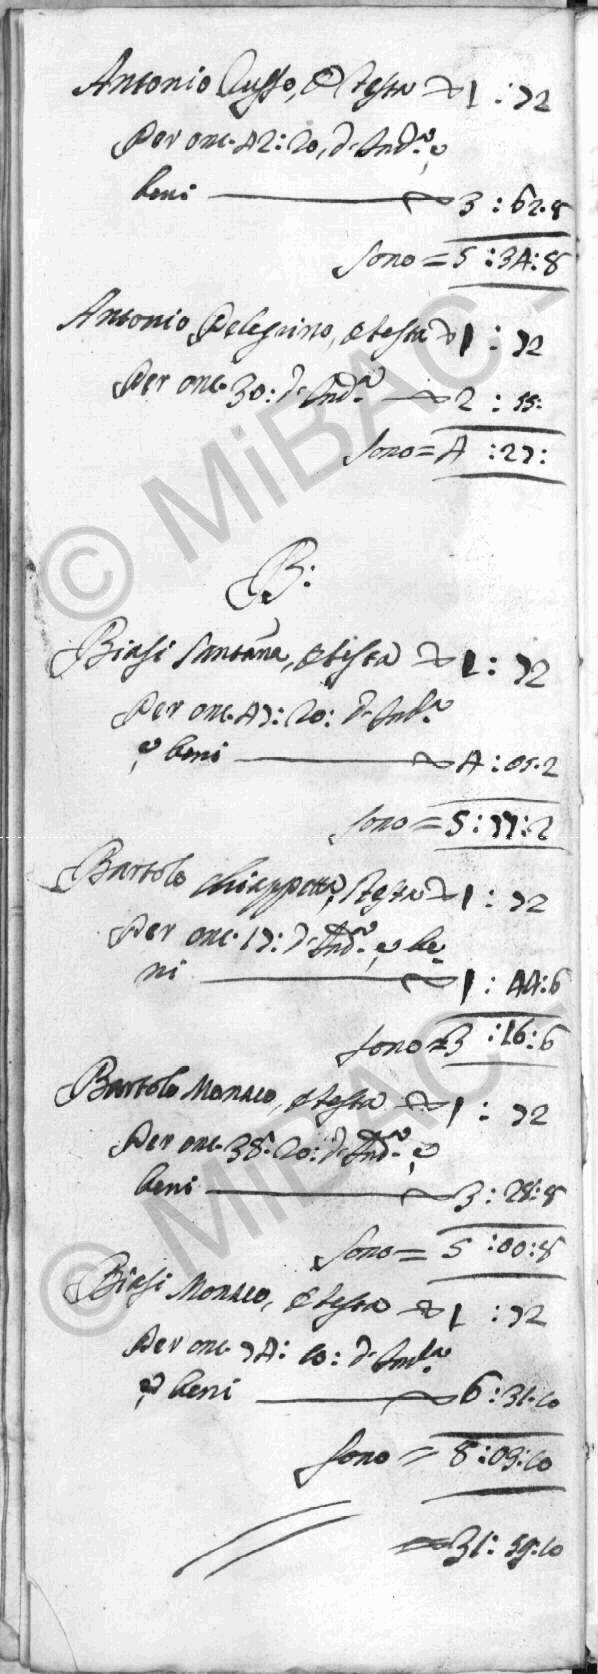 Antonio Russo, e testa 1 : 72
Per onc. 42: 20, d'Ind.a e
beni 3 : 62.8
Sono = 5 : 34 : 8
Antonio Pelegrino, e testa 1 : 72
Per onc. 30: d'Ind.a 2 : 55:
Sono = 4 : 27:
B:
Biasi Santana, e testa 1 : 72
Per onc. 47: 20: d'Ind.a
e beni 4 : 05.2
Sono = 5 : 77 : 2
Bartolo Chiappetta, e testa 1 : 72
Per onc. 17: d'Ind.a e be
ni 1 : 44:6
Sono = 3 : 16 : 6
Bartolo Monaco, e testa 1 : 72
Per onc. 38. 20: d'Ind.a e
beni 3 : 28:8
Sono = 5 : 00 : 8
Biasi Monaco, e testa 1 : 72
Per onc. 74: 10: d'Ind.a
e beni 6 : 31.10
Sono = 8 : 03:10
31 : 59.10
© MiBAC -
© MiBAC -